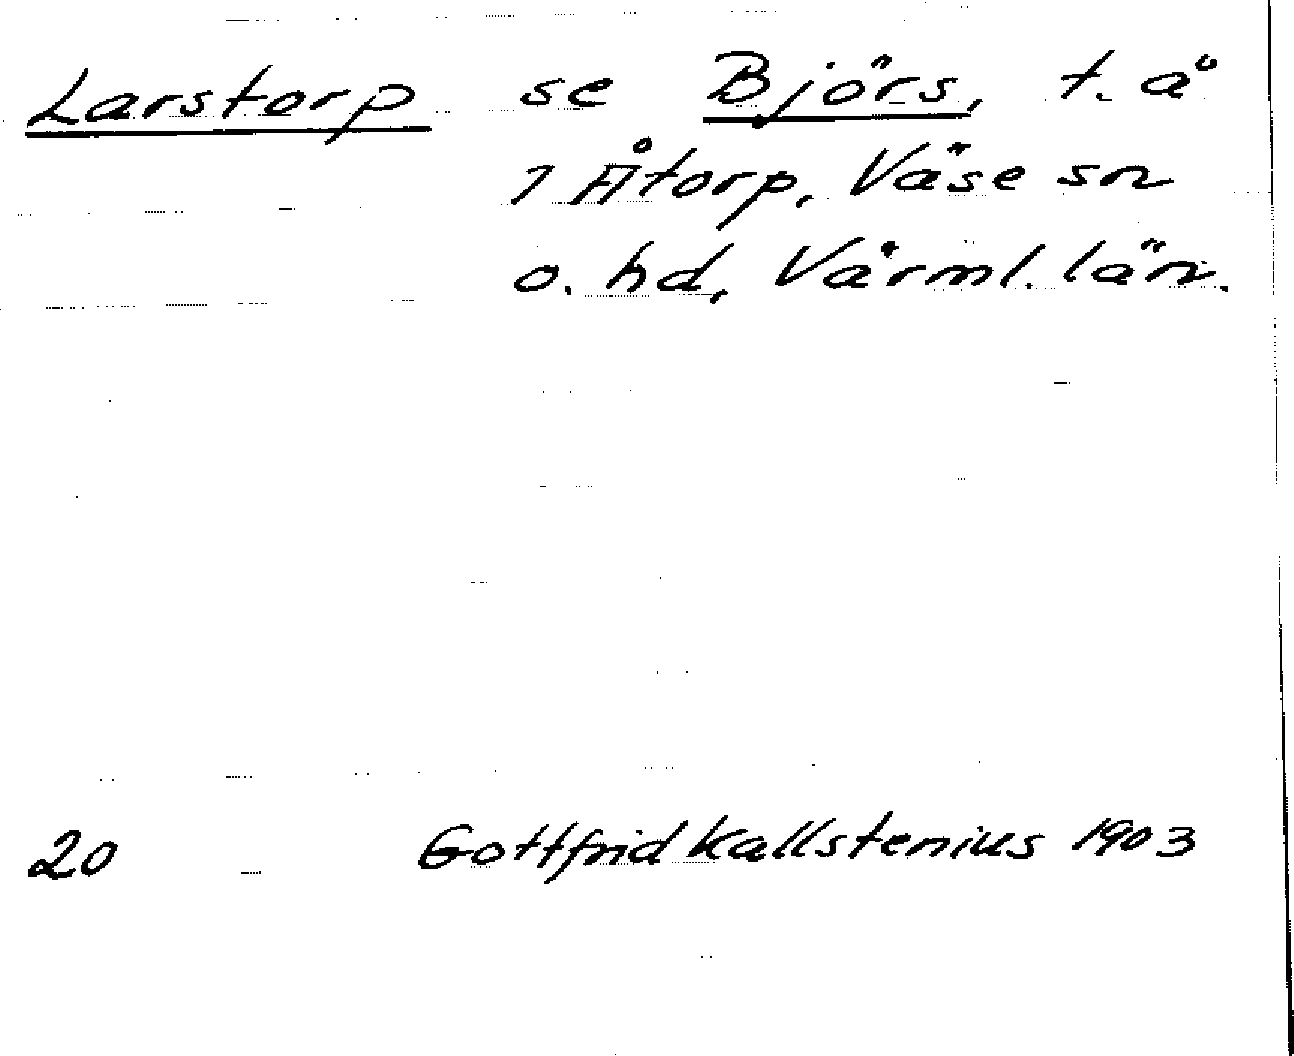 Larstorp se Björs, t. å
1 Åtorp, Väse sn
o. hd, Värml. län.
20 Gottfrid Kallstenius 1903